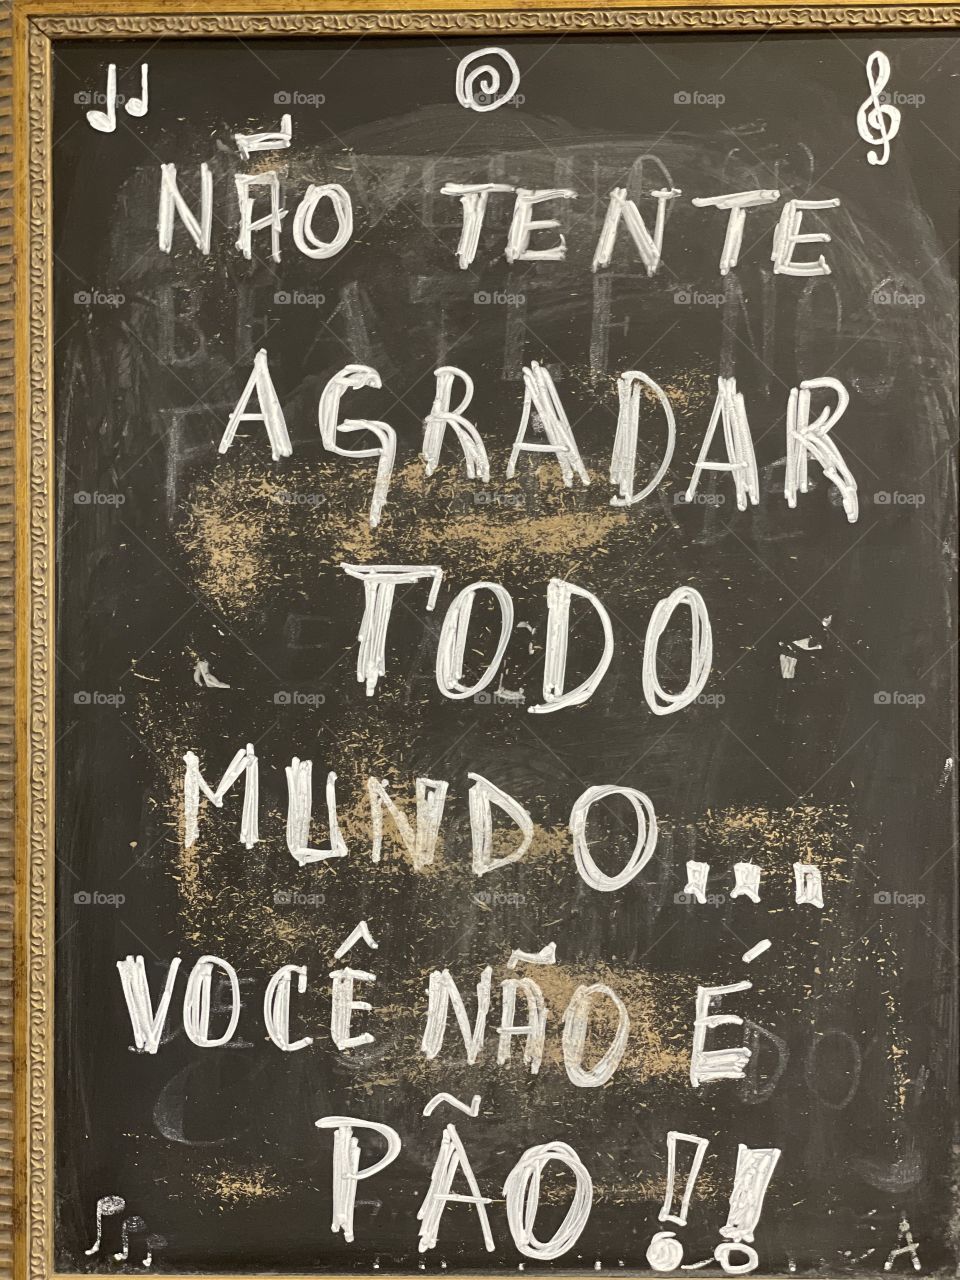 NÃO TENTE
AGRADAR
TODO
MUNDO...
VOCÊ NÃO É
PÃO!!